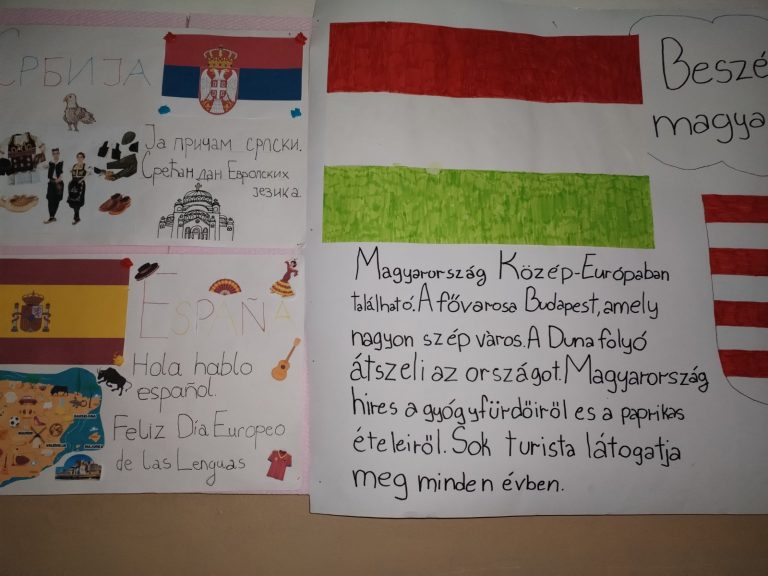 СРБИЈА
Ја причам српски.
Срећан дан Европских
језика
ESPAÑA
Hola hablo
español.
Feliz Día Europeo
de las Lenguas
Beszé
magya
Magyarország Közép-Európaban
található. A fővarosa Budapest, amely
nagyon szép város. A Duna folyó
átszeli az országot. Magyarország
hires a gyógyfürdőiről es a paprikas
ételeiről. Sok turista látogatja
meg minden évben.